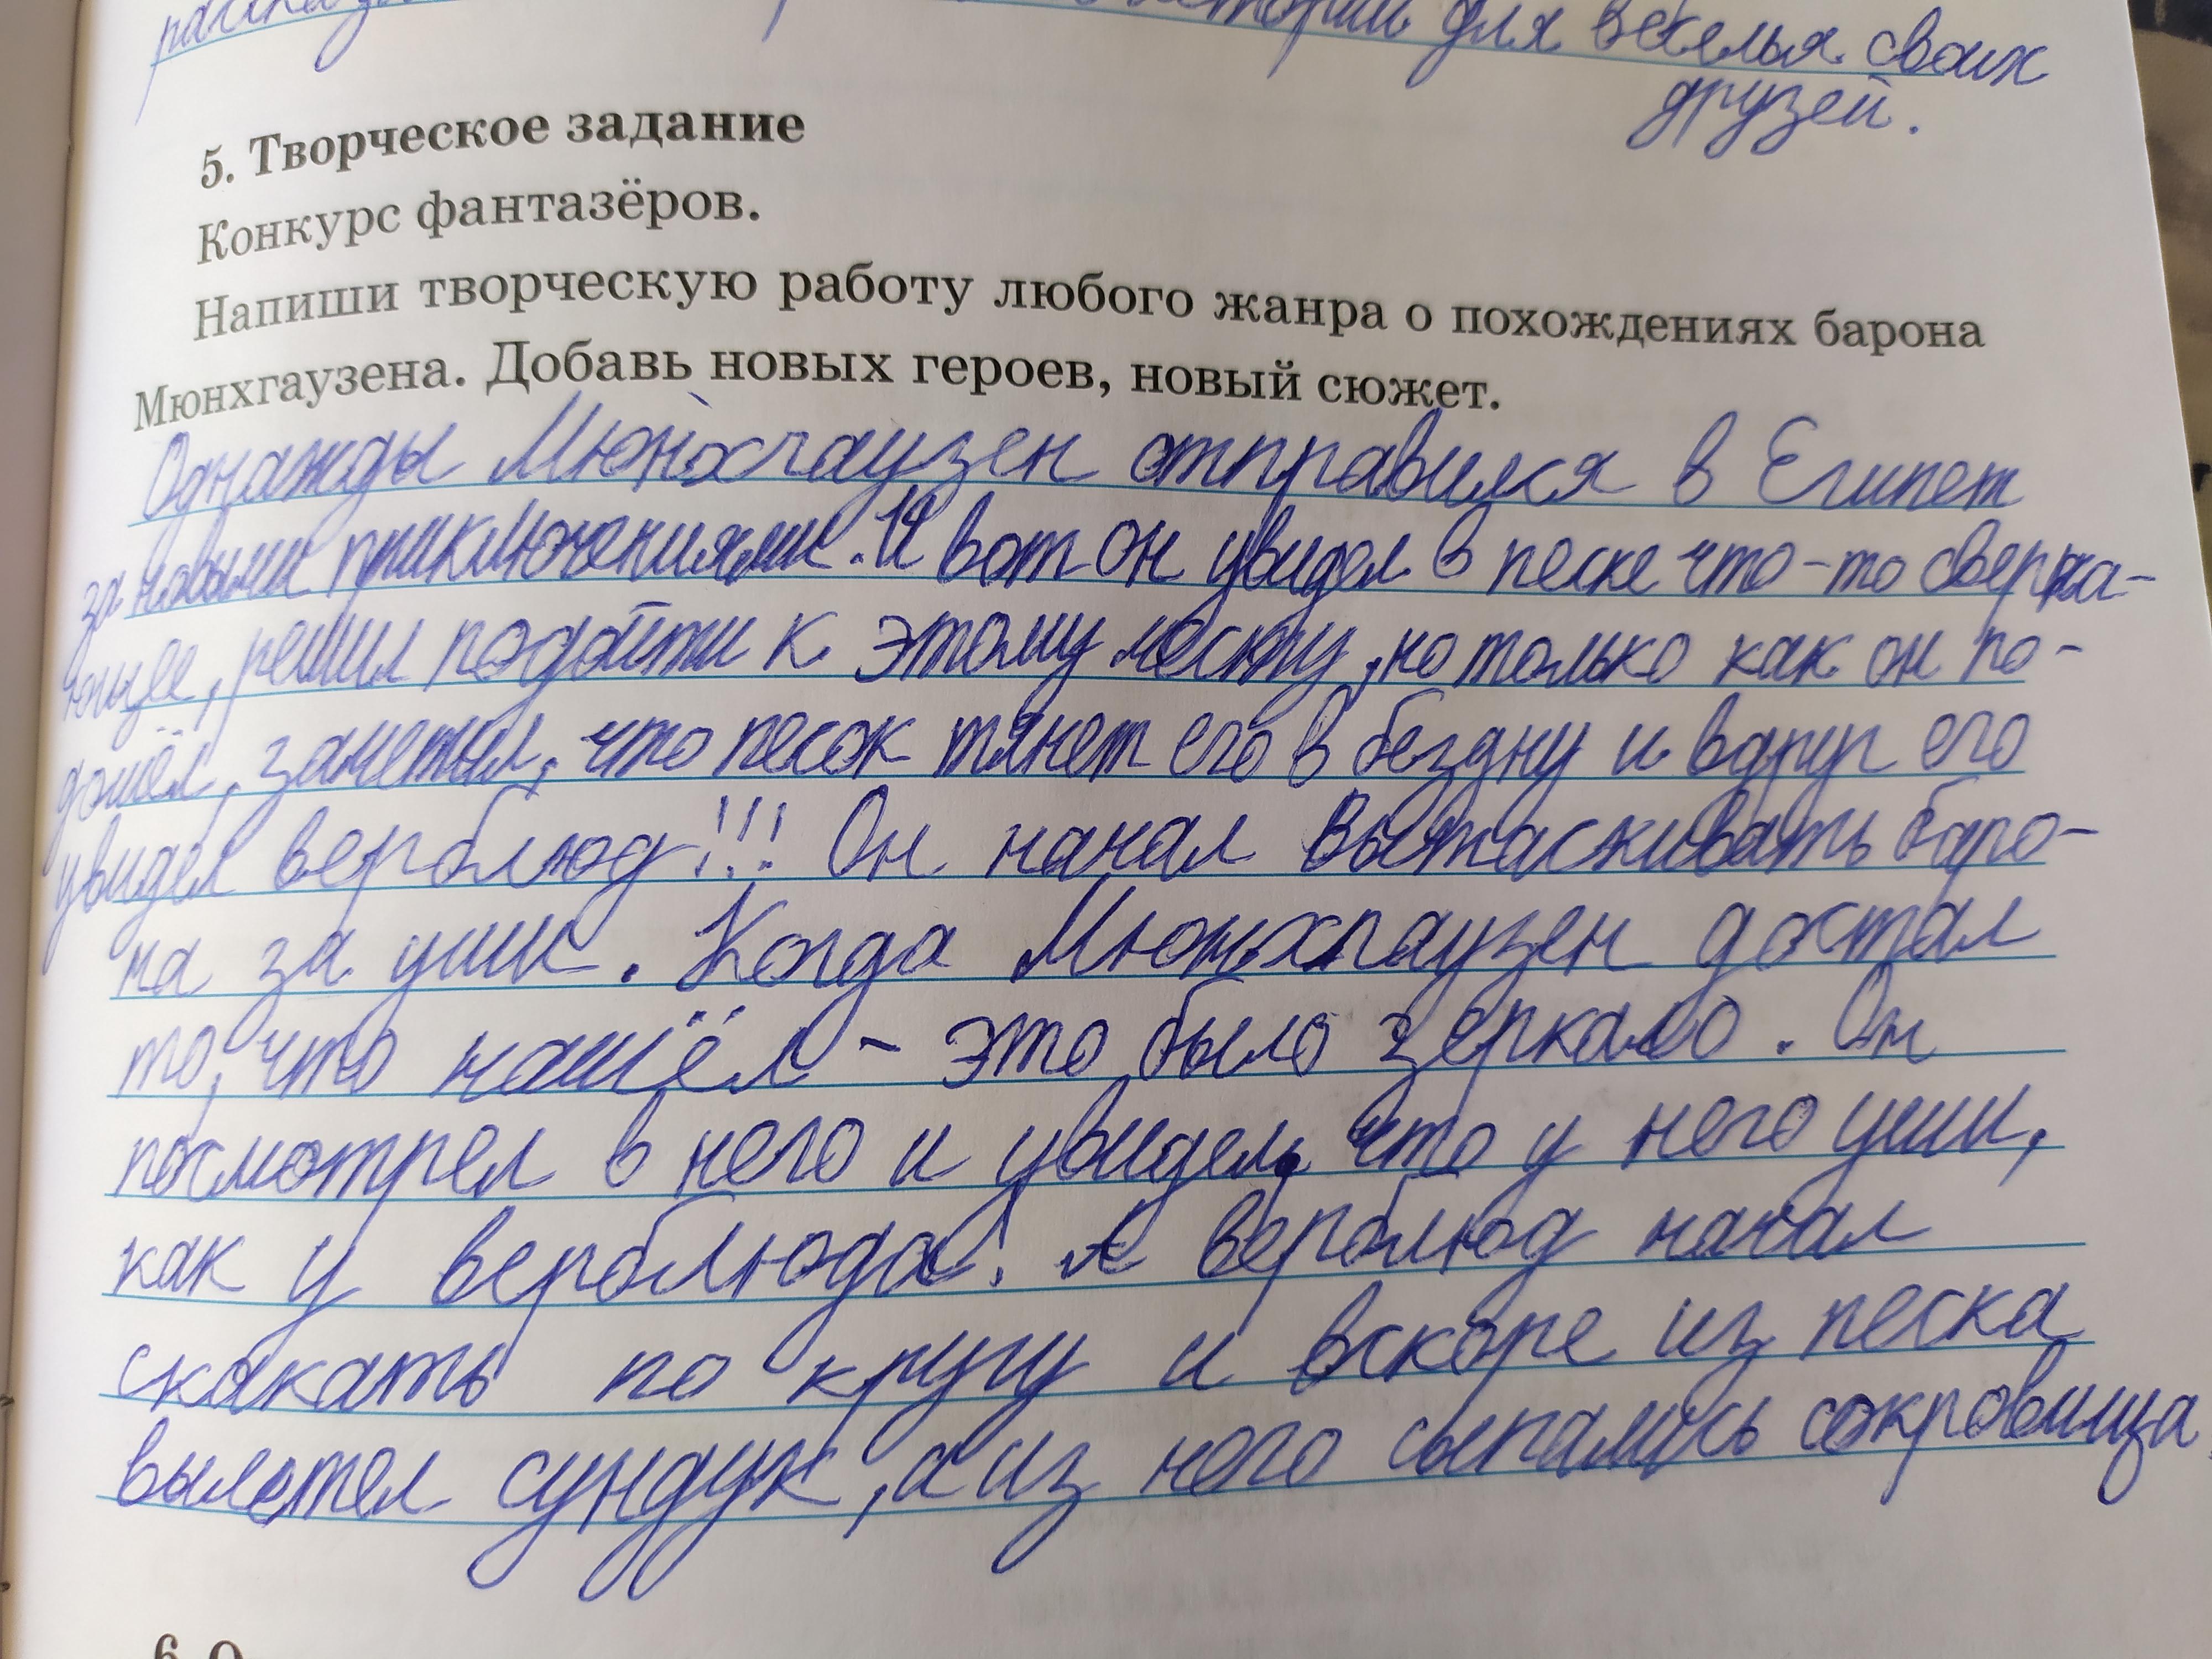 для веселья своих
друзей.
5. Творческое задание
Конкурс фантазёров.
Напиши творческую работу любого жанра о похождениях барона
Мюнхгаузена. Добавь новых героев, новый сюжет.
Однажды Мюнхгаузен отправился в Египет
за новыми приключениями. И вот он увидел в песке что-то сверка-
ющее, решил подойти к этому месту, но только как он по-
дошёл, заметил, что песок тянет его в бездну и вдруг его
увидел верблюд!!! Он начал вытаскивать баро-
на за уши. Когда Мюнхгаузен достал
то, что нашёл - это было зеркало. Он
посмотрел в него и увидел, что у него уши,
как у верблюда! А верблюд начал
скакать по кругу и вскоре из песка
вылетел сундук, а из него сыпались сокровища.